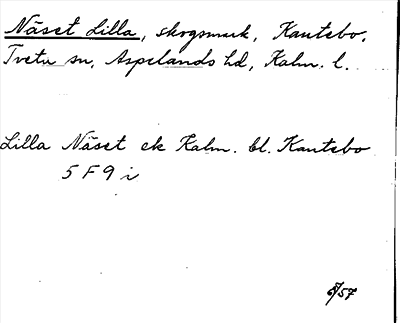 Näset Lilla, skogsmark, Kantebo,
Tveta sn, Aspelands hd, Kalm. l.
Lilla Näset ek Kalm. bl. Kantebo
5 F 9 i
/57